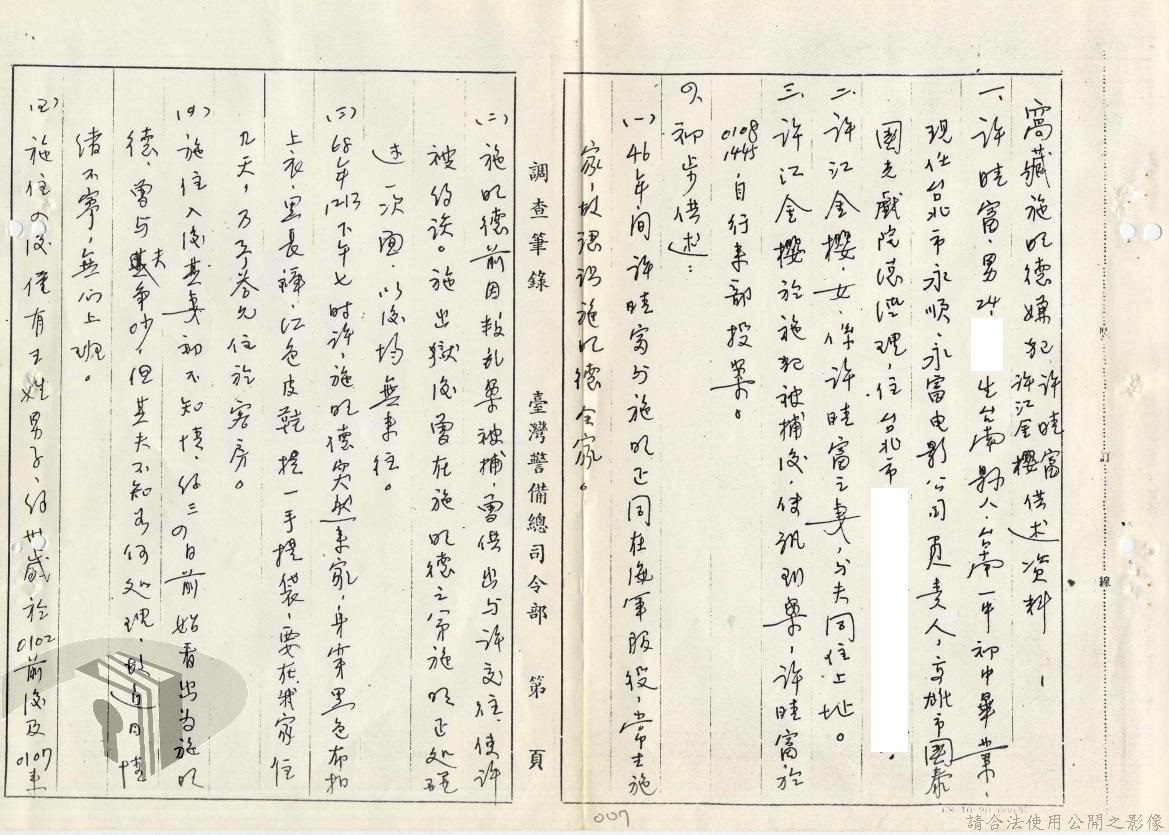 窩藏施明德嫌犯許晴富許江金櫻供述資料
一、許晴富,男24.生台南縣人,台南一中初中畢業,
現任台北市永順、永富電影公司負責人,高雄市國泰
國光戲院總經理,住台北市
二、許江金櫻,女,係許晴富之妻,与夫同住上址。
三、許江金櫻於施犯被捕後,使訊到案,許晴富於
0108
1445自行來部投案。
四、初步供述:
(一)46年間許晴富与施明正同在海軍服役,常去施
家,故認識施明德全家。
調查筆錄 臺灣警備總司令部 第 頁
(二)施明德前因叛乱案被捕,曾供出与許交往,使許
被約談。施出獄後曾在施明德之弟施明正处碰
过一次面,以後均無來往。
(三)68年1213下午七时許,施明德突然來家,身穿黑色布拍
上衣,黑長褲,红色皮鞋提一手提袋,要在我家住
几天,乃予答允住於客房。
(四)施住入後其妻初不知情,约三四日前始看出為施明
德,曾与其夫爭吵,但其夫不知如何处理,故近日情
緒不寧,無心上班。
(五)施住四後僅有王姓男子,约卅歲於0102前後及0107來
007
訂
線
請合法使用公開之影像